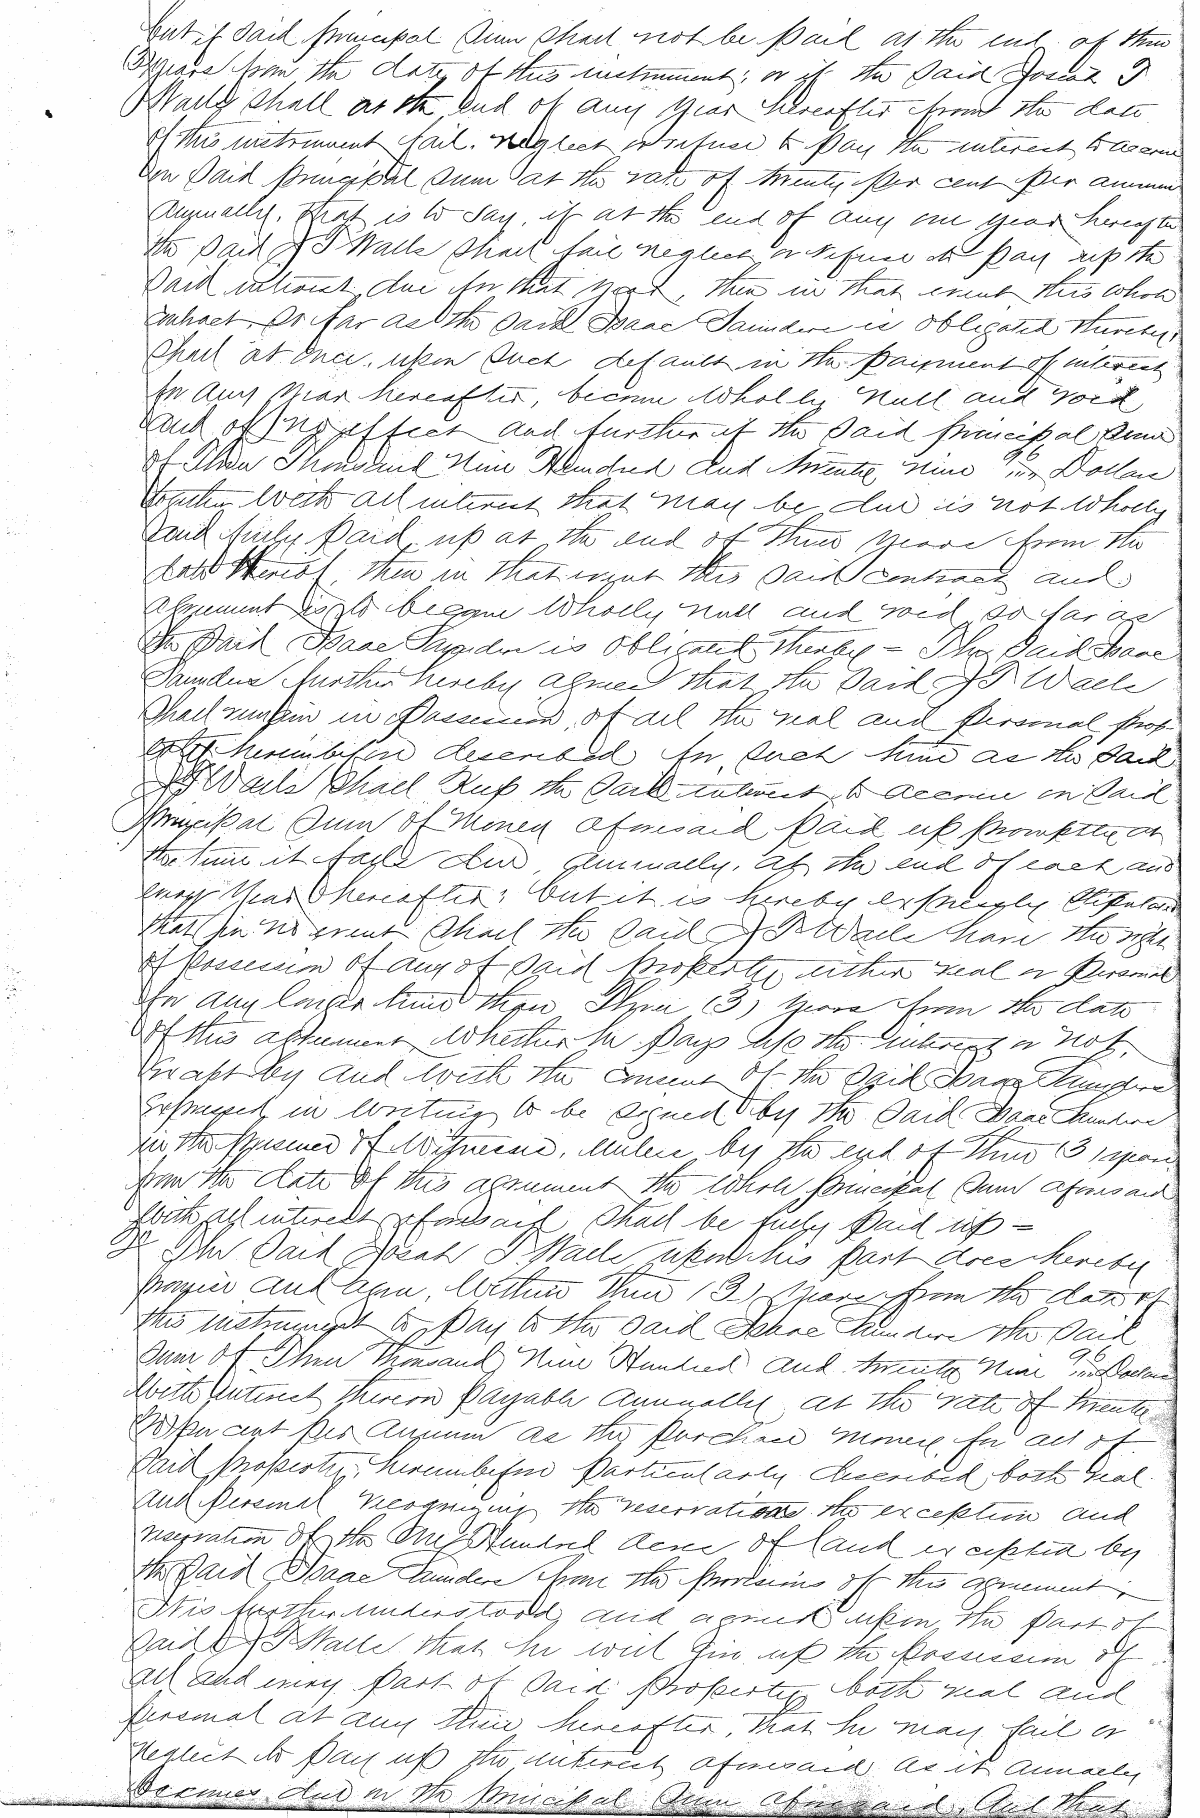 but if said principal sum shall not be paid at the end of three
(3) years from the date of this instrument; or if the said Josiah T
Walls shall at the end of any year hereafter from the date
of this instrument fail, neglect or refuse to pay the interest to accrue
on said principal sum at the rate of twenty per cent per annum
annually, that is to say, if at the end of any one year hereafter
the said J T Walls shall fail neglect or refuse to pay up the
said interest due for that year, then in that event this whole
contract, so far as the said Isaac Saunders is obligated thereby,
shall at once, upon such default in the payment of interest
for any year hereafter, become wholly null and void
and of no effect and further if the said principal sum
of Three Thousand Nine Hundred and twenty nine 96/... Dollars
together with all interest that may be due is not wholly
and fully paid up at the end of three years from the
date thereof, then in that event this said contract and
agreement is to become wholly null and void so far as
the said Isaac Saunders is obligated thereby = The said Isaac
Saunders further hereby agrees that the said J T Walls
shall remain in possession of all the real and personal prop-
erty hereinbefore described for such time as the said
J T Walls shall keep the said interest to accrue on said
principal sum of money aforesaid paid up promptly at
the time it falls due, annually, at the end of each and
every year hereafter; but it is hereby expressly stipulated
that in no event shall the said J T Walls have the right
of possession of any of said property either real or personal
for any longer time than Three (3) years from the date
of this agreement, whether he pays up the interest or not,
except by and with the consent of the said Isaac Saunders
expressed in writing to be signed by the said Isaac Saunders
in the presence of witnesses, unless by the end of three (3) years
from the date of this agreement the whole principal sum aforesaid
with all interest aforesaid shall be fully paid up =
The said Josiah T Walls upon his part does hereby
promise and agree, within three (3) years from the date of
this instrument to pay to the said Isaac Saunders the said
sum of Three Thousand Nine Hundred and twenty nine 96/... Dollars
with interest thereon payable annually at the rate of twenty
(20) per cent per annum as the purchase money for all of
said property, hereinbefore particularly described both real
and personal recognizing the reservations the exception and
reservation of the One Hundred acres of land excepted by
the said Isaac Saunders from the provisions of this agreement.
It is further understood and agreed upon the part of
said J T Walls that he will give up the possession of
all and every part of said property both real and
personal at any time hereafter, that he may fail or
neglect to pay up the interest aforesaid as it annually
becomes due on the principal sum aforesaid. And that